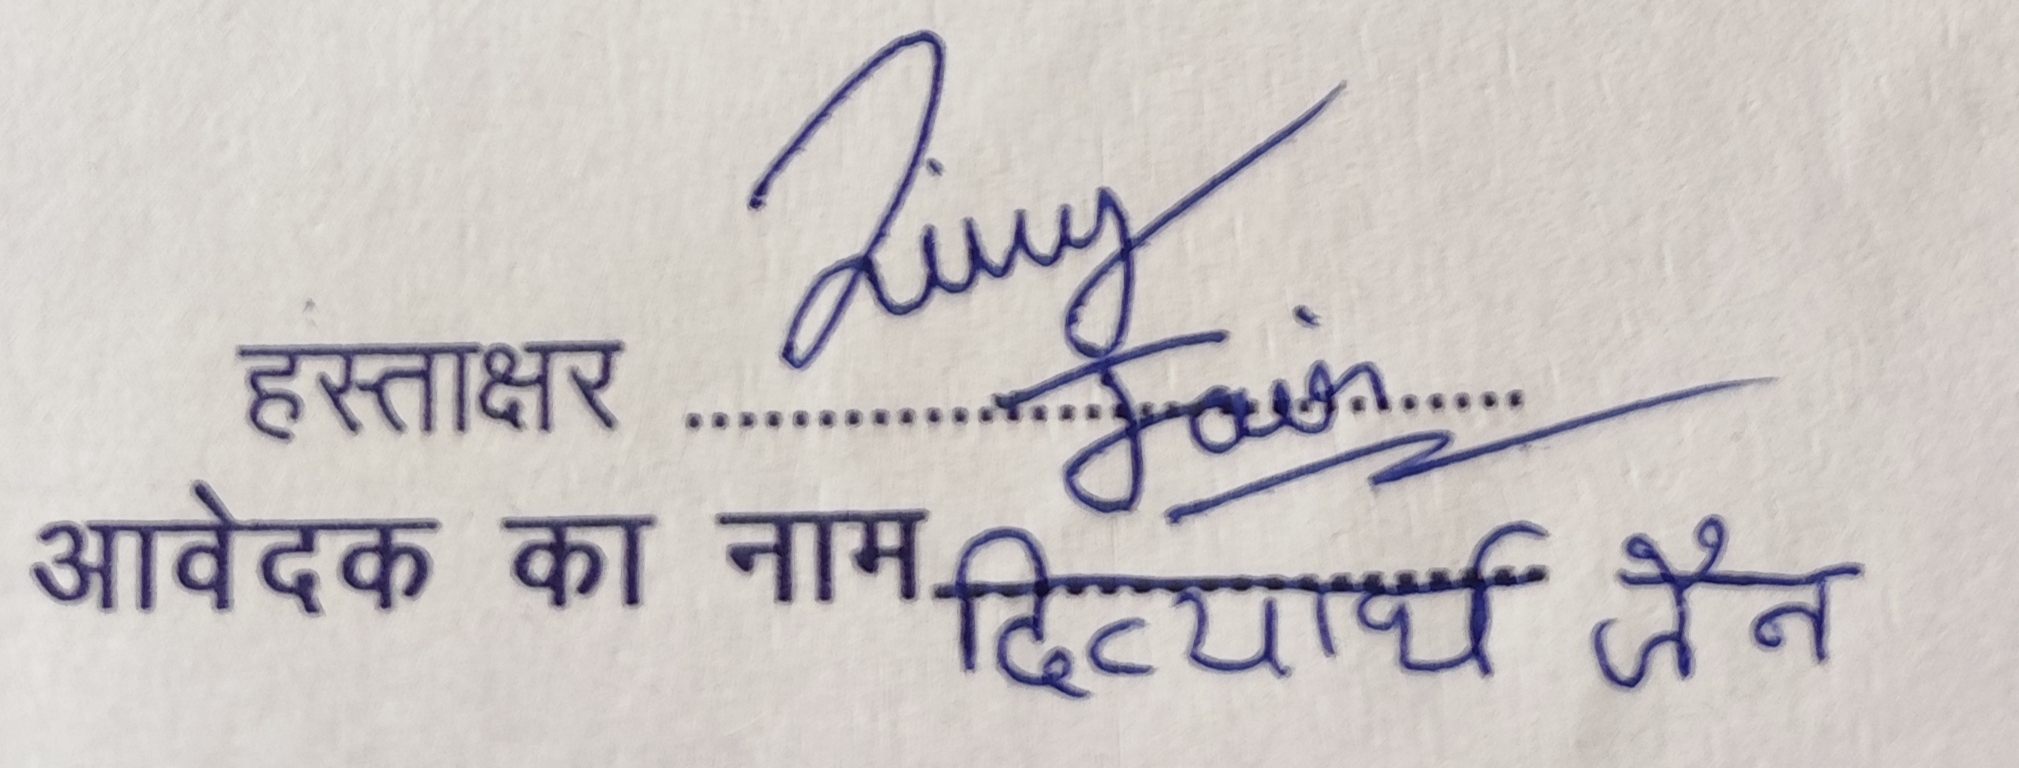 हस्ताक्षर .......................... Jain
आवेदक का नाम दिव्यार्थ जैन